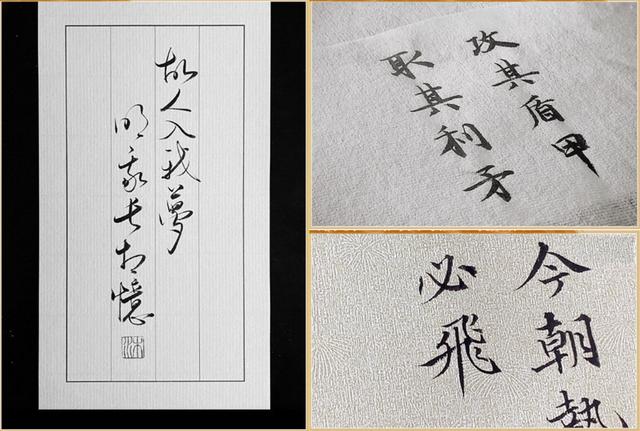 故人入我夢
明我長相憶
攻其盾甲
取其利矛
今朝執
必飛